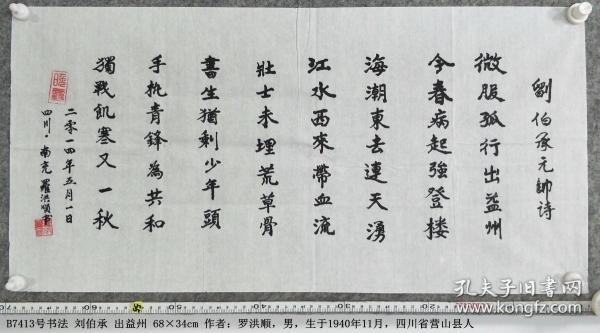 劉伯承元帥詩
微服孤行出益州
今春病起強登樓
海潮東去連天湧
江水西來帶血流
壯士未埋荒草骨
書生猶剩少年頭
手執青鋒為共和
獨戰飢寒又一秋
二零一四年五月一日
四川·南充 羅洪順書
孔夫子旧书网
B7413号书法 刘伯承 出益州 68×34cm 作者：罗洪顺，男，生于1940年11月，四川省营山县人